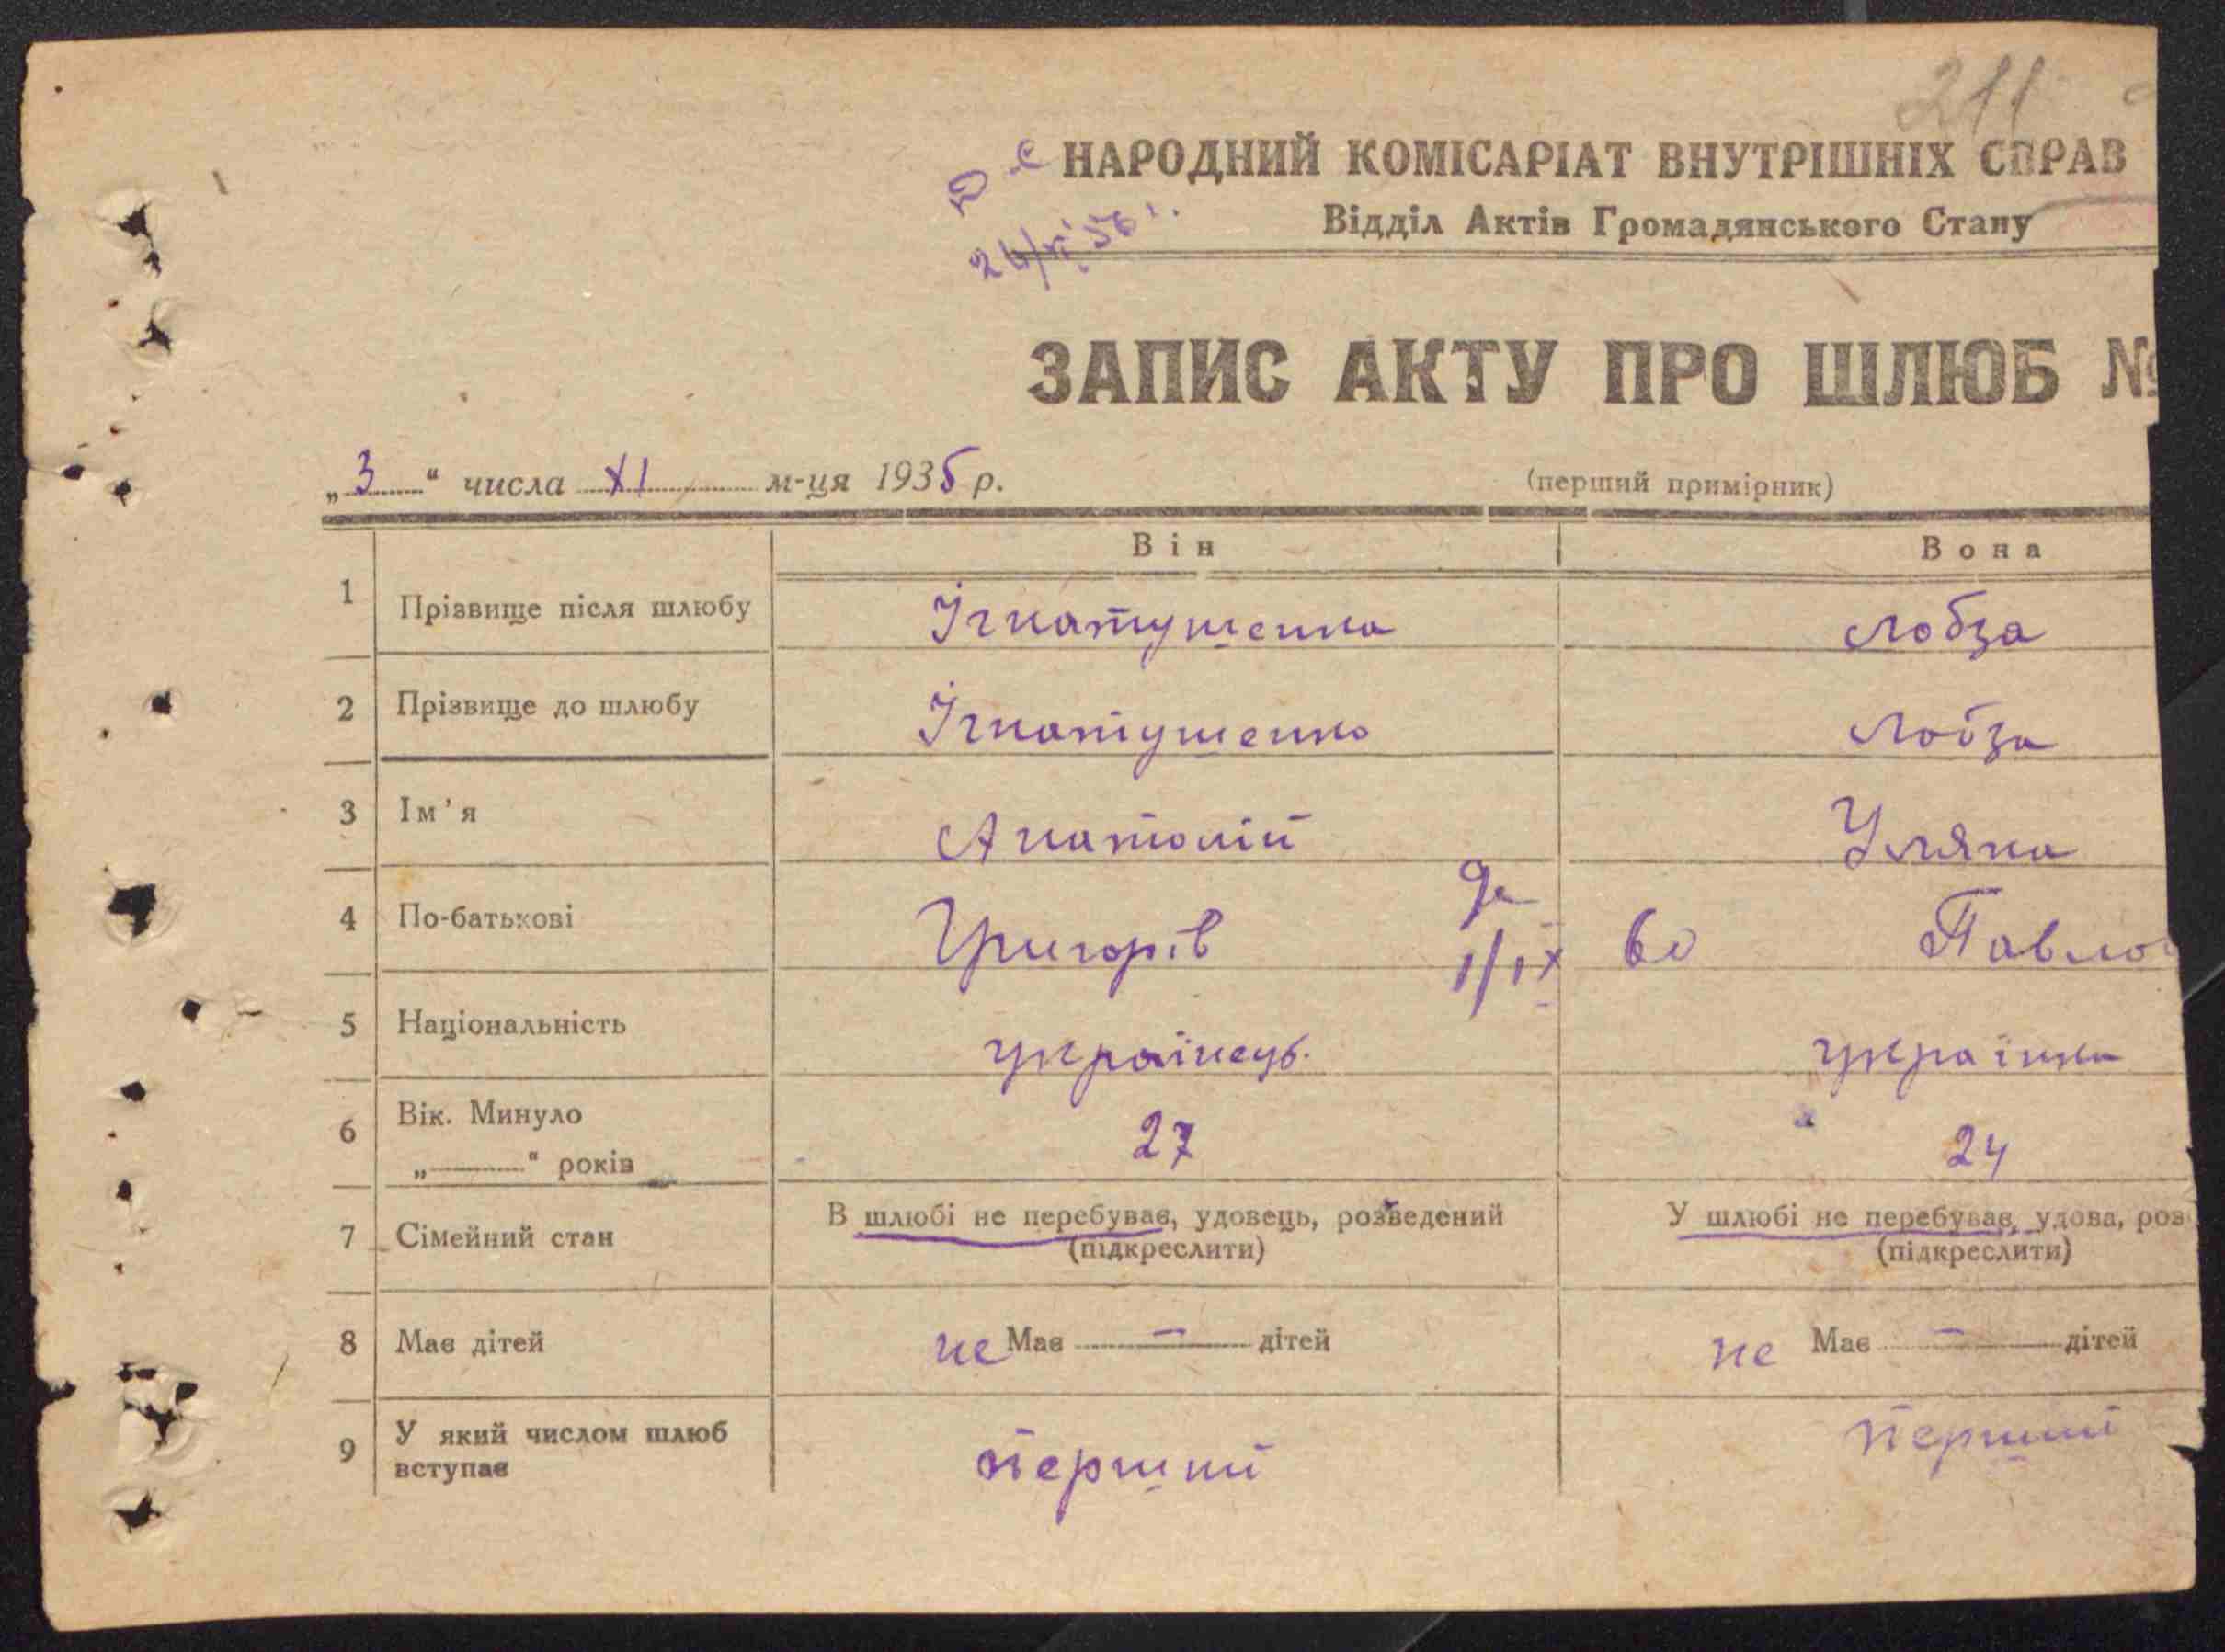 211
НАРОДНИЙ КОМІСАРІАТ ВНУТРІШНІХ СПРАВ
Відділ Актів Громадянського Стану
ЗАПИС АКТУ ПРО ШЛЮБ №
„3“ числа XI м-ця 1935 р.
(перший примірник)
Він Вона
1 Прізвище після шлюбу Ігнатушенко Лобза
2 Прізвище до шлюбу Ігнатушенко Лобза
3 Ім'я Анатолій Уляна
4 По-батькові Григорів 1/IX 60 Павло
5 Національність українець. українка
6 Вік. Минуло „ “ років 27 24
7 Сімейний стан В шлюбі не перебуває, удовець, розведений У шлюбі не перебуває, удова, роз
(підкреслити) (підкреслити)
8 Має дітей не Має — дітей не Має — дітей
9 У який числом шлюб вступає перший перший